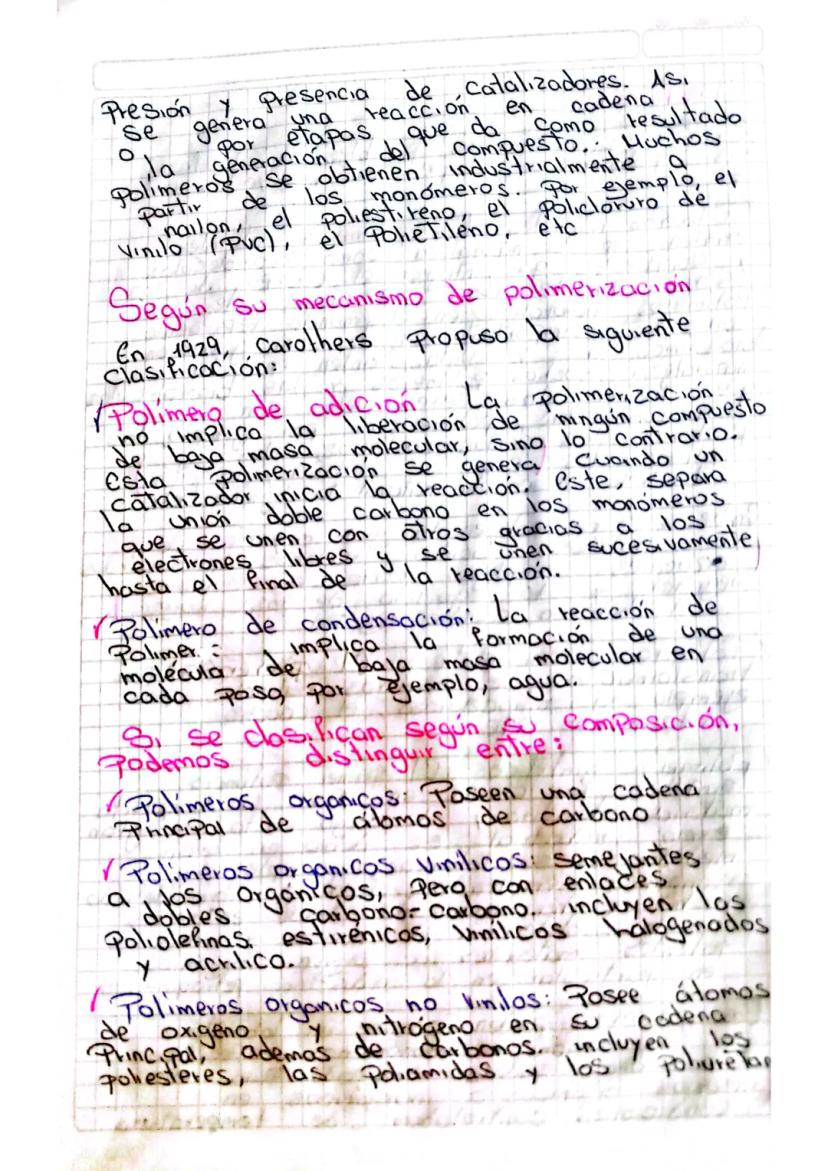 Presión y presencia de catalizadores. Así
se genera una reacción en cadena
o por etapas que da como resultado
la generación del compuesto. Muchos
polímeros se obtienen industrialmente a
partir de los monómeros. por ejemplo, el
nailon, el poliestireno, el policloruro de
vinilo (PVC), el Polietileno, etc
Según su mecanismo de polimerización
En 1929, Carothers Propuso la siguiente
clasificación:
Polímero de adición La polimerización
no implica la liberación de ningún compuesto
de baja masa molecular, sino lo contrario.
Esta polimerización se genera cuando un
catalizador inicia la reacción. Este, separa
la unión doble carbono en los monómeros
que se unen con otros gracias a los
electrones libres y se unen sucesivamente
hasta el final de la reacción.
Polímero de condensación: La reacción de
Polimer : implica la formación de una
molécula de baja masa molecular en
cada paso, por ejemplo, agua.
Si se clasifican según su composición,
Podemos distinguir entre:
Polímeros organicos: Poseen una cadena
Principal de átomos de carbono
Polímeros organicos vinílicos: semejantes
a los orgánicos, pero con enlaces
dobles carbono-carbono. incluyen las
poliolefinas, estirénicos, vinílicos halogenados
y acrílico.
Polímeros organicos no vinilos: Posee átomos
de oxígeno y nitrógeno en su cadena
Principal, ademas de carbonos. incluyen los
poliesteres, las poliamidas y los poliuretan